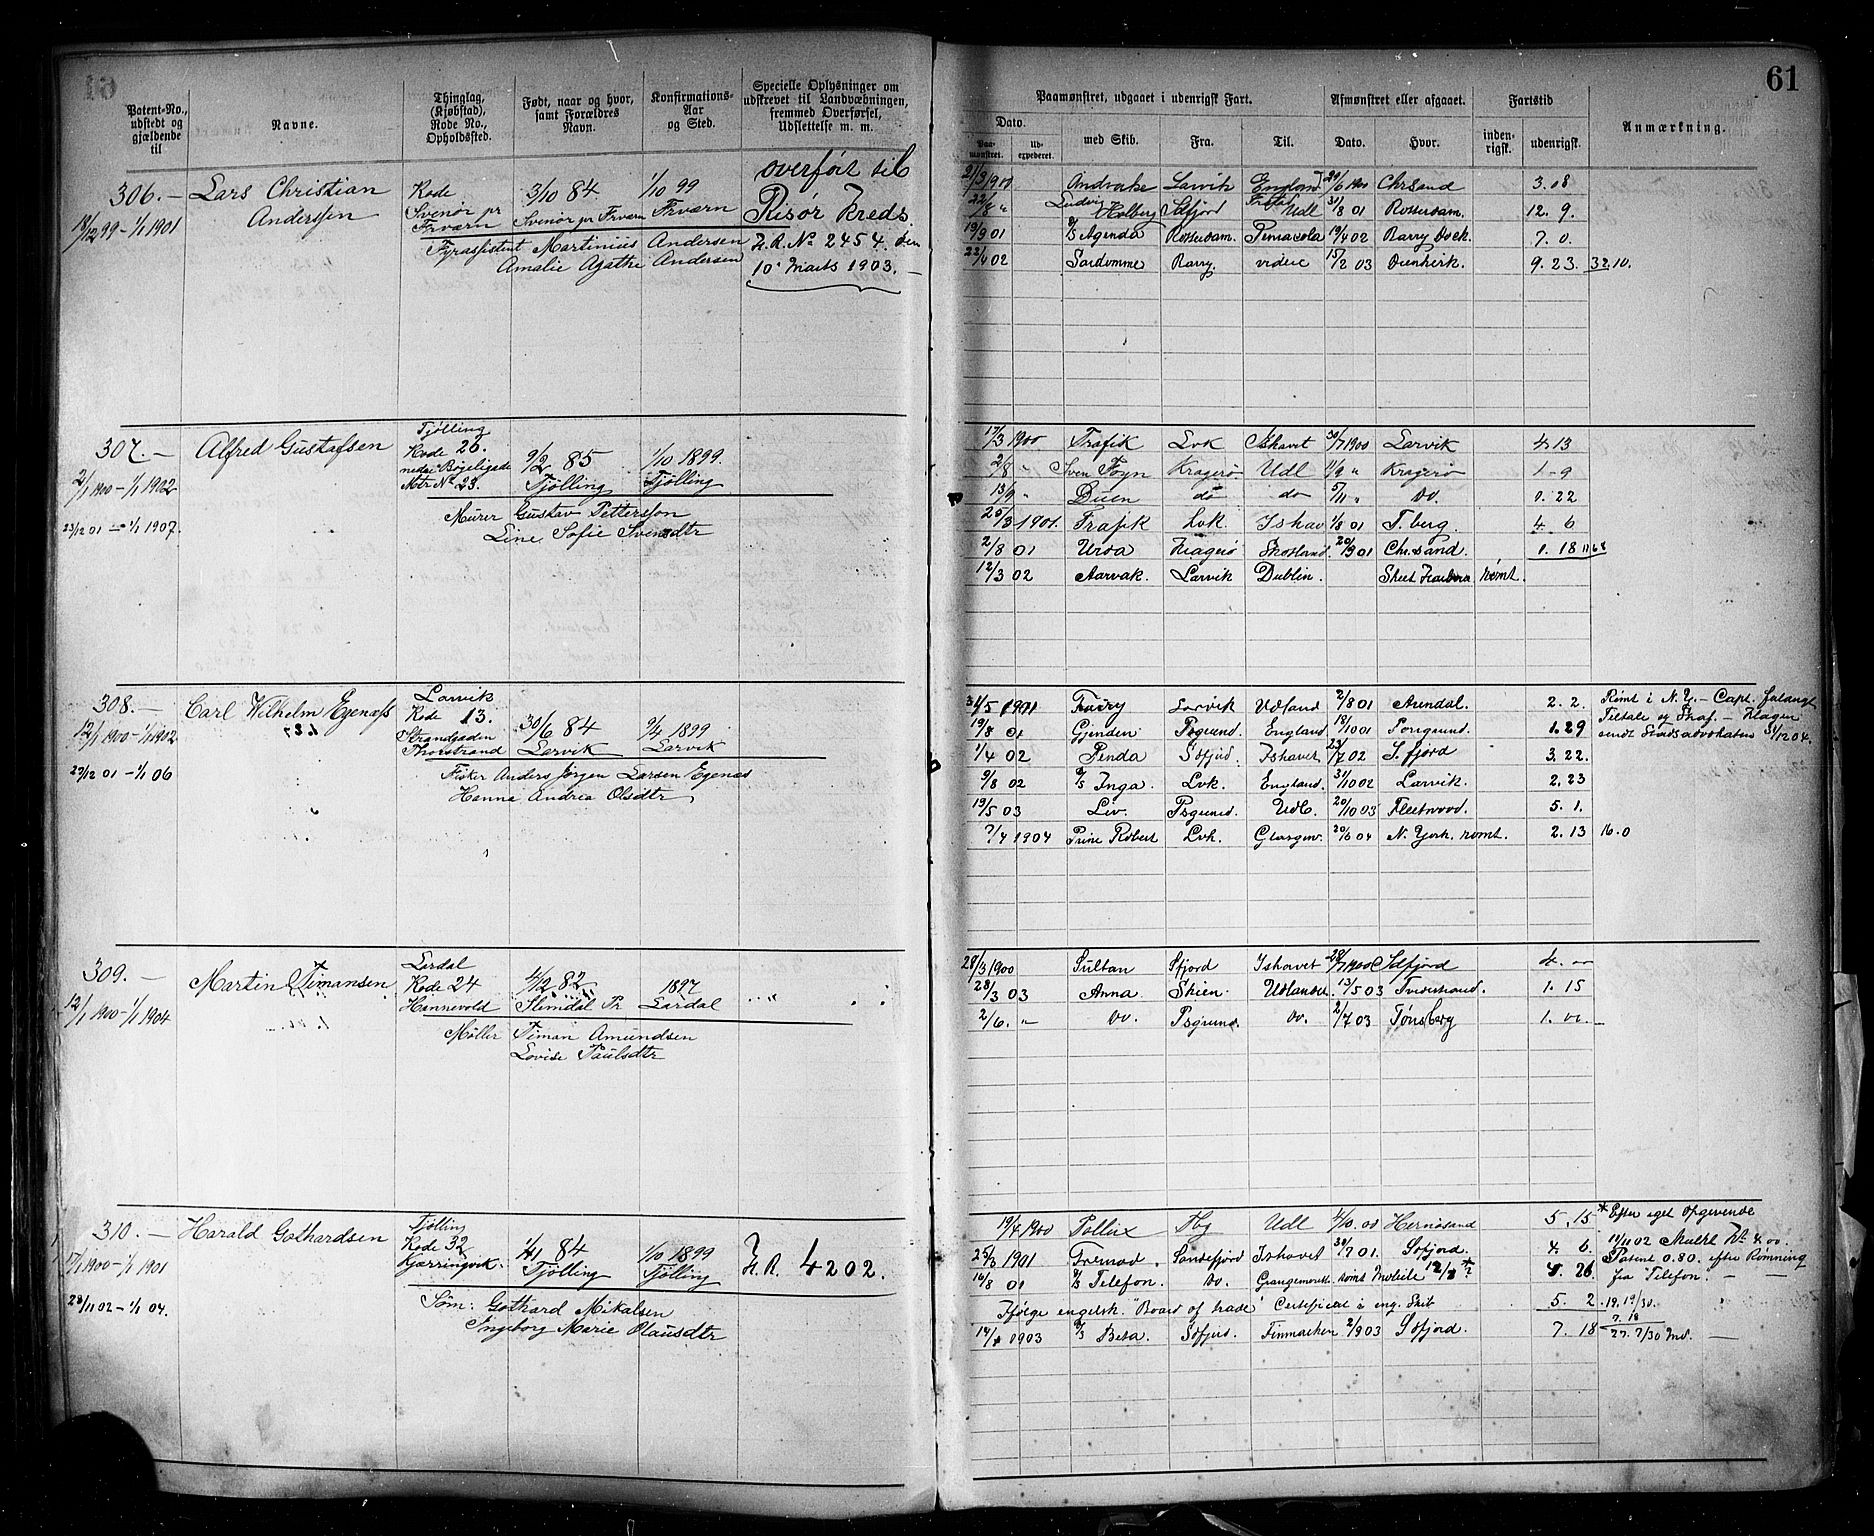 61
Patent-No., udstedt og gjældende til
Navne.
Thinglag, (Kjøbstad), Rode No., Opholdssted.
Født, naar og hvor, samt Forældres Navn.
Konfirmations-Aar og Sted.
Specielle Oplysninger om udskrevet til Landvæbningen, fremmed Oversørsel, Udslettelse m. m.
Paamønstret, udgaaet i udenrigsk Fart.
Afmønstret eller afgaaet.
Fartstid
Anmærkning.
Dato.
Paamønstret.
Udexpederet.
med Skib.
Fra.
Til.
Dato.
Hvor.
indenrigsk.
udenrigsk.
306.— Lars Christian Anderssen
18/12 99 – 1/1 1901
Rode Svenør pr Frværn
3/10 84. Svenør pr Frværn
1/10 99 Frværn
overført til Risør Kreds. H.R. No 2454 den 10 Marts 1903. —
Fyrassistent Martinius Andersen
Amalie Agathe Andersen
21/3 1900 Andvake Larvik England 29/6 1900 Chrsand 3.18
22/8 " Ludvig Holberg Sdfjord Udl 31/8 01 Rotterdam. 12. 9.
19/9 01 S/S Agenda Rotterdam. Pensacola 19/4 02 Barry Dock. 7. 0.
22/4 02 Sardomme Barry. videre 15/2 03 Dunkirk. 9. 23. 32.10.
307.— Alfred Gustafsen
2/1 1900 – 1/1 1902
23/12 01 – 1/1 1907.
Tjølling Rode 26. nedre Bøgeligade Mtr No 23.
9/2 85 Tjølling
1/10 1899. Tjølling
Murer Gustav Pettersson
Line Sofie Svensdtr
17/3 1900 Trafik Lvk Ishavet 30/7 1900 Larvik 4 13
2/8 " Sven Foyn Kragerø Udl 1/9 " Kragerø 1 - 9
13/9 " Duen do do 5/11 " Do. 0. 22
25/3 1901. Trafik Lvk. Ishav 1/8 01 T.berg. 4. 6
2/8 01 Urda Kragerø Skotland 20/9 01 Chr.sand. 1. 18 11 68
12/3 02 Aarvak. Larvik Dublin. rømt.
308.— Carl Wilhelm Egenæss
12/1 1900 – 1/1 1902
23/12 01 – 1/1 06
Larvik Rode 13. Strandgaden Thorstrand
30/6 84 Larvik
9/4 1899 Larvik
Fisker Anders Jørgen Larsen Egenæs
Hanna Andrea Olsdtr
31/5 1901 Larvik Udland 2/8 01 Arendal. 2. 2.
Rømt i N.Y. – Capt. forlangt
Tiltale og Straf. –
sendt Statsadvokaten 31/12 04.
19/8 01 Gjenden Psgrund. England 18/10 01 Porsgrund. 1. 29
1/4 02 Penda Sdfjrd. Ishavet 23/7 02 S.fjord 3. 22.
9/8 02 S/S Inga Lvk. England. 31/10 02 Larvik. 2. 23
19/5 03 Liv. Psgrund. Udl. 20/10 03 Fleetwood. 5. 1.
7/4 1904 Prins Robert Lvk. Glasgow. 20/6 04 N. York. rømt. 2. 13 16.0
309. — Martin Timansen
12/1 1900 – 1/1 1904
Lardal Rode 24 Hannevold
4/12 82 Slimdal Pr
1897 Lardal
Møller Timan Amundsen
Lovise Paulsdtr
28/3 1900 Sultan Sfjord Ishavet 28/7 1900 Sdfjord 4. —
28/3 03 Anna Skien. Udlandet. 13/5 03 Tvedestrand. 1. 15
2/6. " Do. Psgrund. Do. 2/7 03 Tønsberg 1. 00.
310. — Harald Gothardsen
17/1 1900 – 1/1 1901
28/11 02 – 1/1 04.
Tjølling Rode 32 Kjærringvik.
1/11 84 Tjølling
1/10 1899 Tjølling
H.R. 4202.
Søm: Gothard Mikalsen
Ingeborg Marie Olausdtr
19/4 1900 Pollux Tbg Udl 4/10.00 Hernøsand 5. 15
* Efter eget Opgivende
11/11 02 Mulkt Kr 4.00.
Patent 0.80. efter Rømning
fra "Telefon."
25/3 1901 Fremad. Sandefjord Ishavet 30/7 01. Sdfjord. 4. 6.
16/8 01 S/S Telefon. Do. Grangemouth rømt Mobile 12/2 *? 4. 26
Ifølge engelsk "Board of trade" Certificat i eng. Skib 5. 2 19. 19/30.
7. 18
14/1 1903 S/S Beta. Sdfjrd. Finmarken 2/9 03 Sdfjord. 7. 18 27. 7/30 Md.